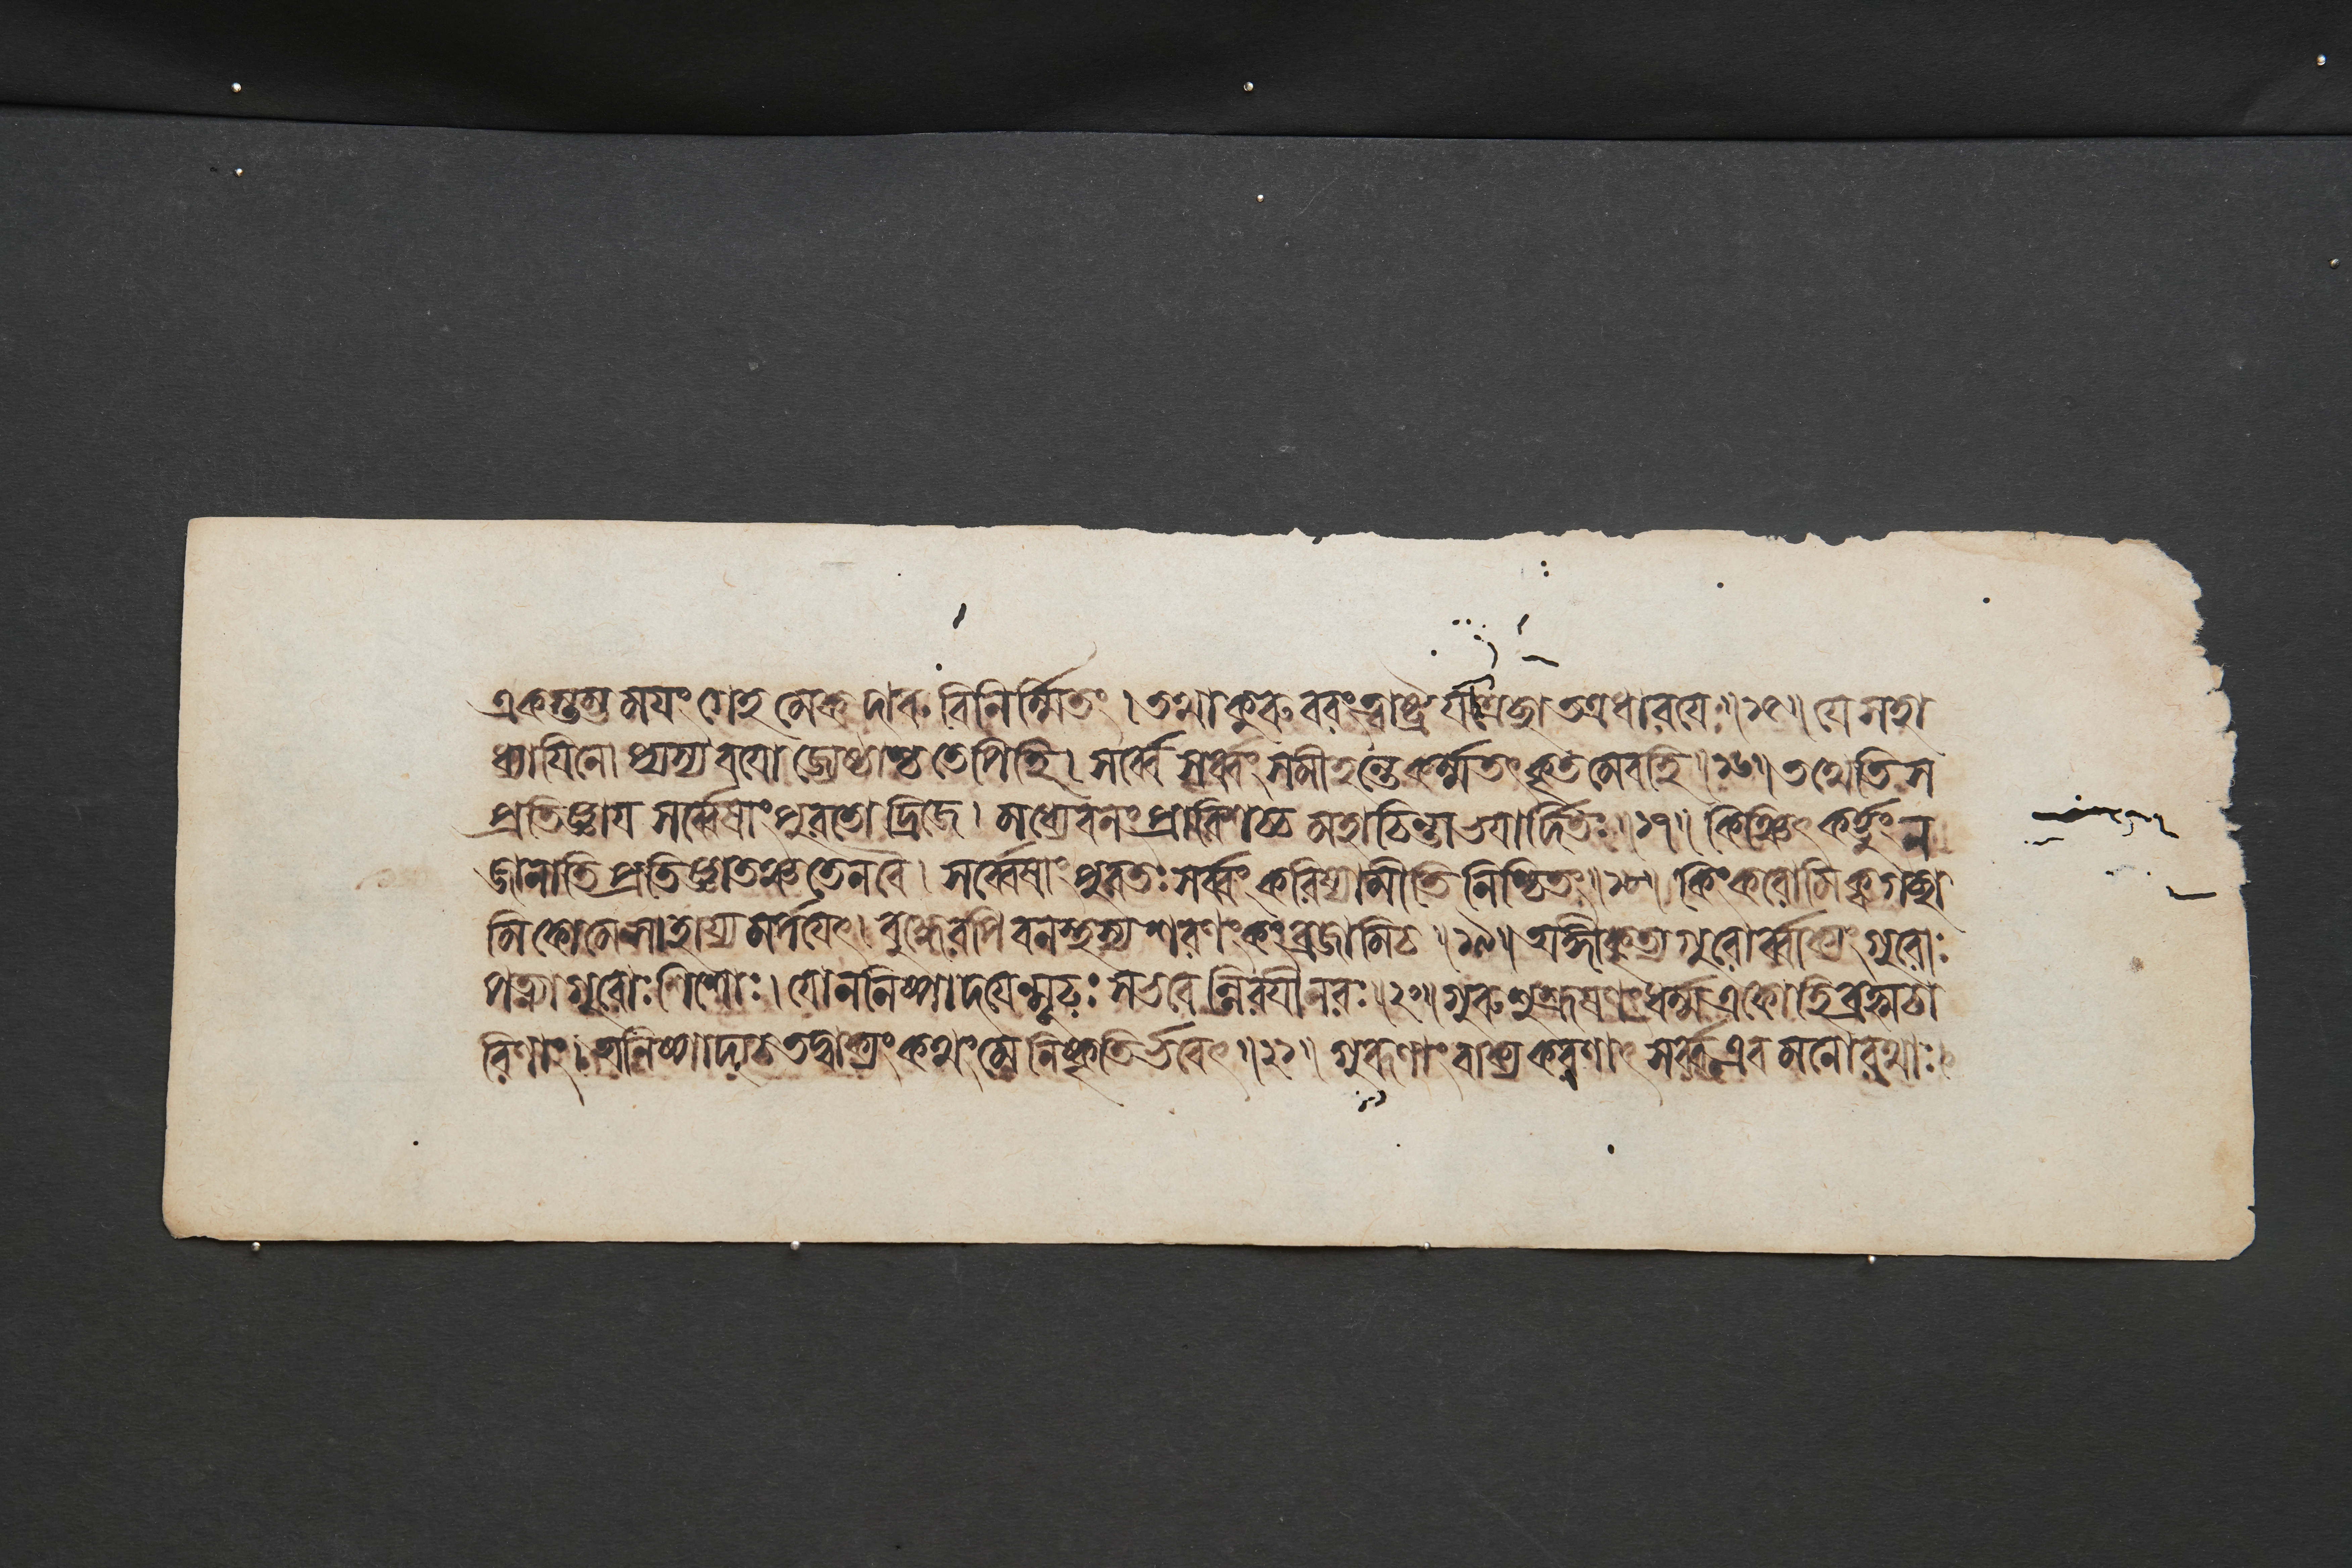 একস্তম্ভময়ং গেহমেকদারুবিনির্ম্মিতং। তথাকুরুবরংত্বাষ্ট্র যত্রেচ্ছা তত্রধারয়ে॥১৫॥ যে সহা
ধ্যায়িনো প্যস্যবয়োজ্যেষ্ঠাশ্চতেপিহি। সর্ব্বে সর্ব্বং সমীহন্তেকর্ম্মতৎ কৃতমেবহি॥১৬॥ তথেতি স
প্রতিজ্ঞায় সর্ব্বেষাং পুরতো দ্রিজে। মধ্যেবনং প্রাবিশচ্চ মহাচিন্তাভয়ার্দ্দিতঃ॥১৭॥ কিঞ্চিৎ কর্ত্তুং ন
জানাতি প্রতিজ্ঞাতঞ্চতেনবৈ। সর্ব্বেষাং পুরতঃ সর্ব্বং করিষ্যামীতি নিশ্চিতং॥১৮॥ কিং করোমি ক্বগচ্ছা
মি কোমে সাহায্যমর্পয়েৎ। বুদ্ধেরপি বনস্থস্য শরণং কং ব্রজামিচ॥১৯॥ অঙ্গীকৃত্য গুরোর্ব্বাক্যং গুরোঃ
পত্ন্যা গুরোঃ শিশোঃ। যো ন নিষ্পাদয়েন্মূঢ়ঃ সভবেন্নিরয়ীনরঃ॥২০॥ গুরুশুশ্রূষণং ধর্ম্ম একোহি ব্রহ্মচা
রিণাং। অনিষ্পাদ্যচ তদ্বাক্যং কথং মে নিষ্কৃতির্ভবেৎ॥২১॥ গুরূণাং বাক্যকরণাৎ সর্ব্বএব মনোরথাঃ।